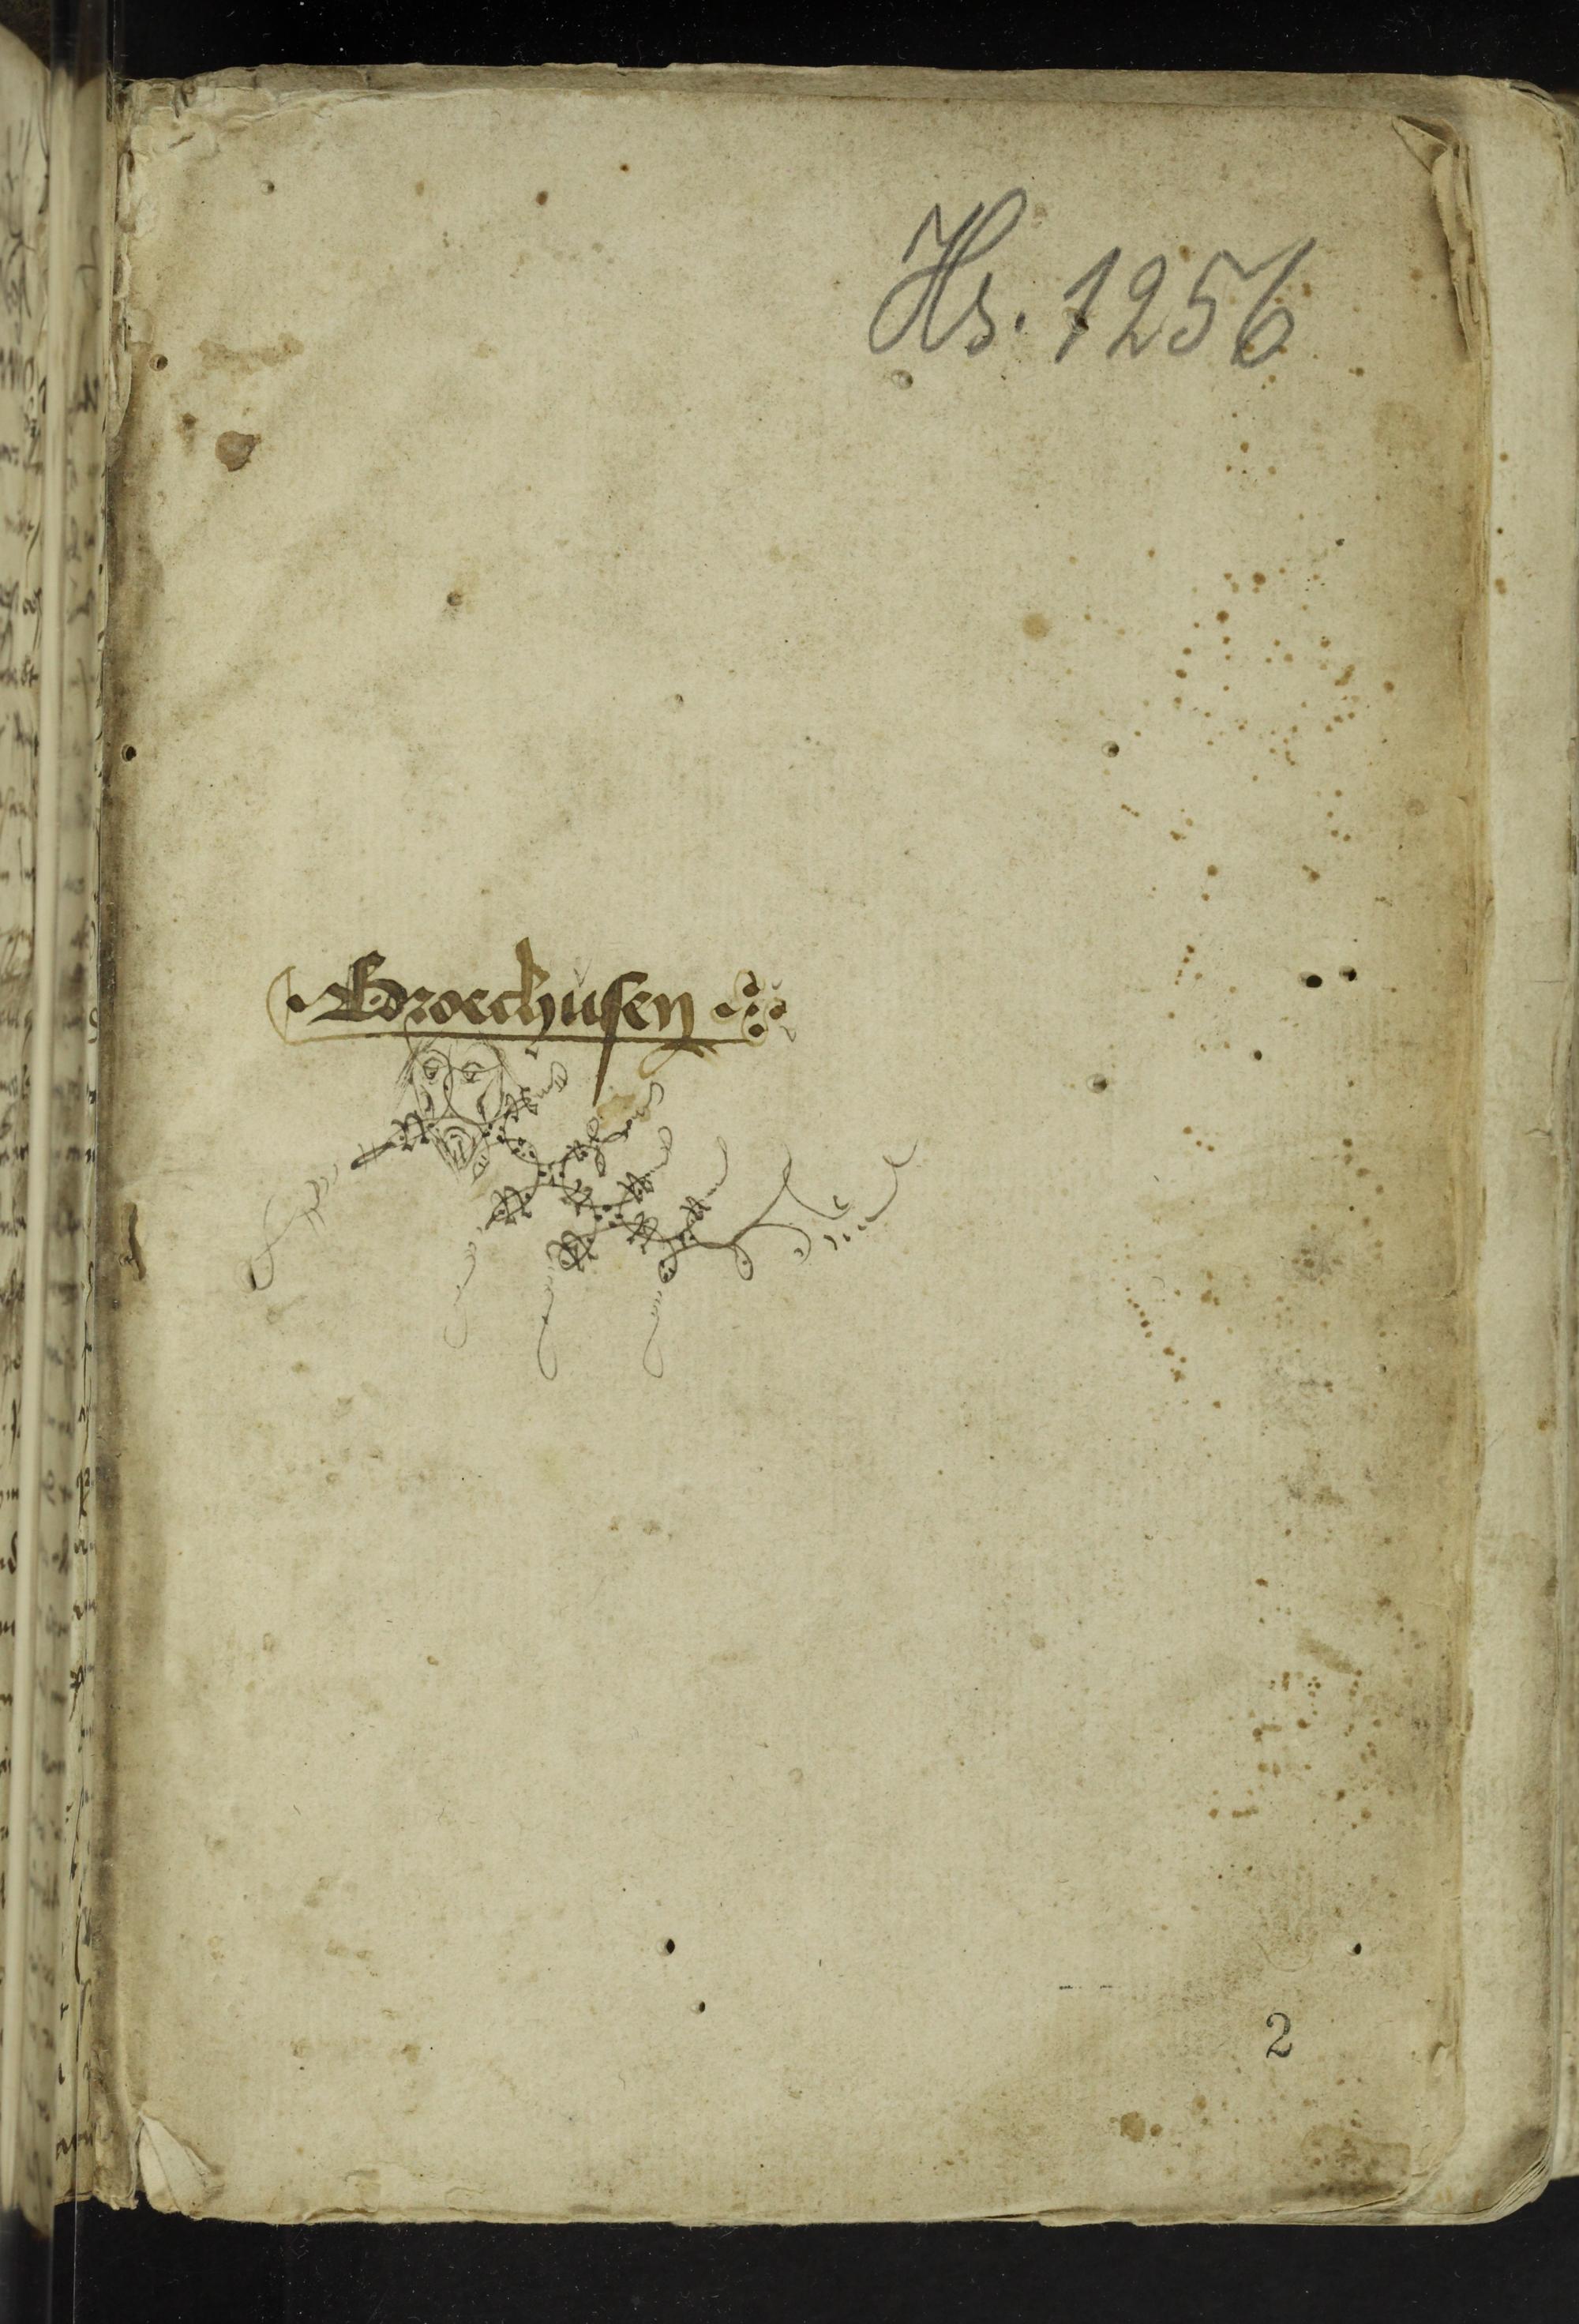 Hs. 1256
Broechusen
2